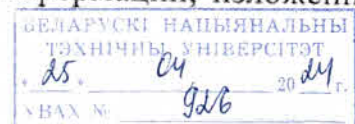 изложенн
БЕЛАРУСКІ НАЦЫЯНАЛЬНЫ
ТЭХНІЧНЫ УНІВЕРСІТЭТ
"25" 04 2024 г.
УВАХ № 926